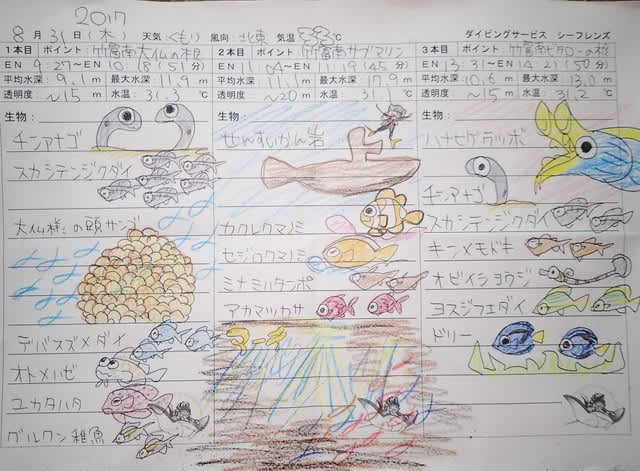 2017
8月31日(木) 天気 くもり 風向 北東 気温 33℃ ダイビングサービス シーフレンズ
1本目 ポイント: 竹富南大仏の根
EN 9:27〜EN 10:18(51分)
平均水深: 9.1m 最大水深 11.9m
透明度 〜15m 水温: 31.3℃
生物:
チンアナゴ
スカシテンジクダイ
大仏様の頭サンゴ
デバスズメダイ
オトメハゼ
ユカタハタ
グルクン稚魚
2本目 ポイント: 竹富南サブマリン
EN 11:04〜EN 11:49(45分)
平均水深: 11.1m 最大水深 17.9m
透明度 〜20m 水温: 31.1℃
生物:
せんすいかん岩
カクレクマノミ
セジロクマノミ
ミナミハタンポ
アカマツカサ
3本目 ポイント: 竹富南ピタローの根
EN 13:31〜EN 14:21(50分)
平均水深: 10.6m 最大水深 13.0m
透明度 〜15m 水温: 31.2℃
生物:
ハナヒゲウツボ
チンアナゴ
スカシテンジクダイ
キンメモドキ
オビイシヨウジ
ヨスジフエダイ
ドリー